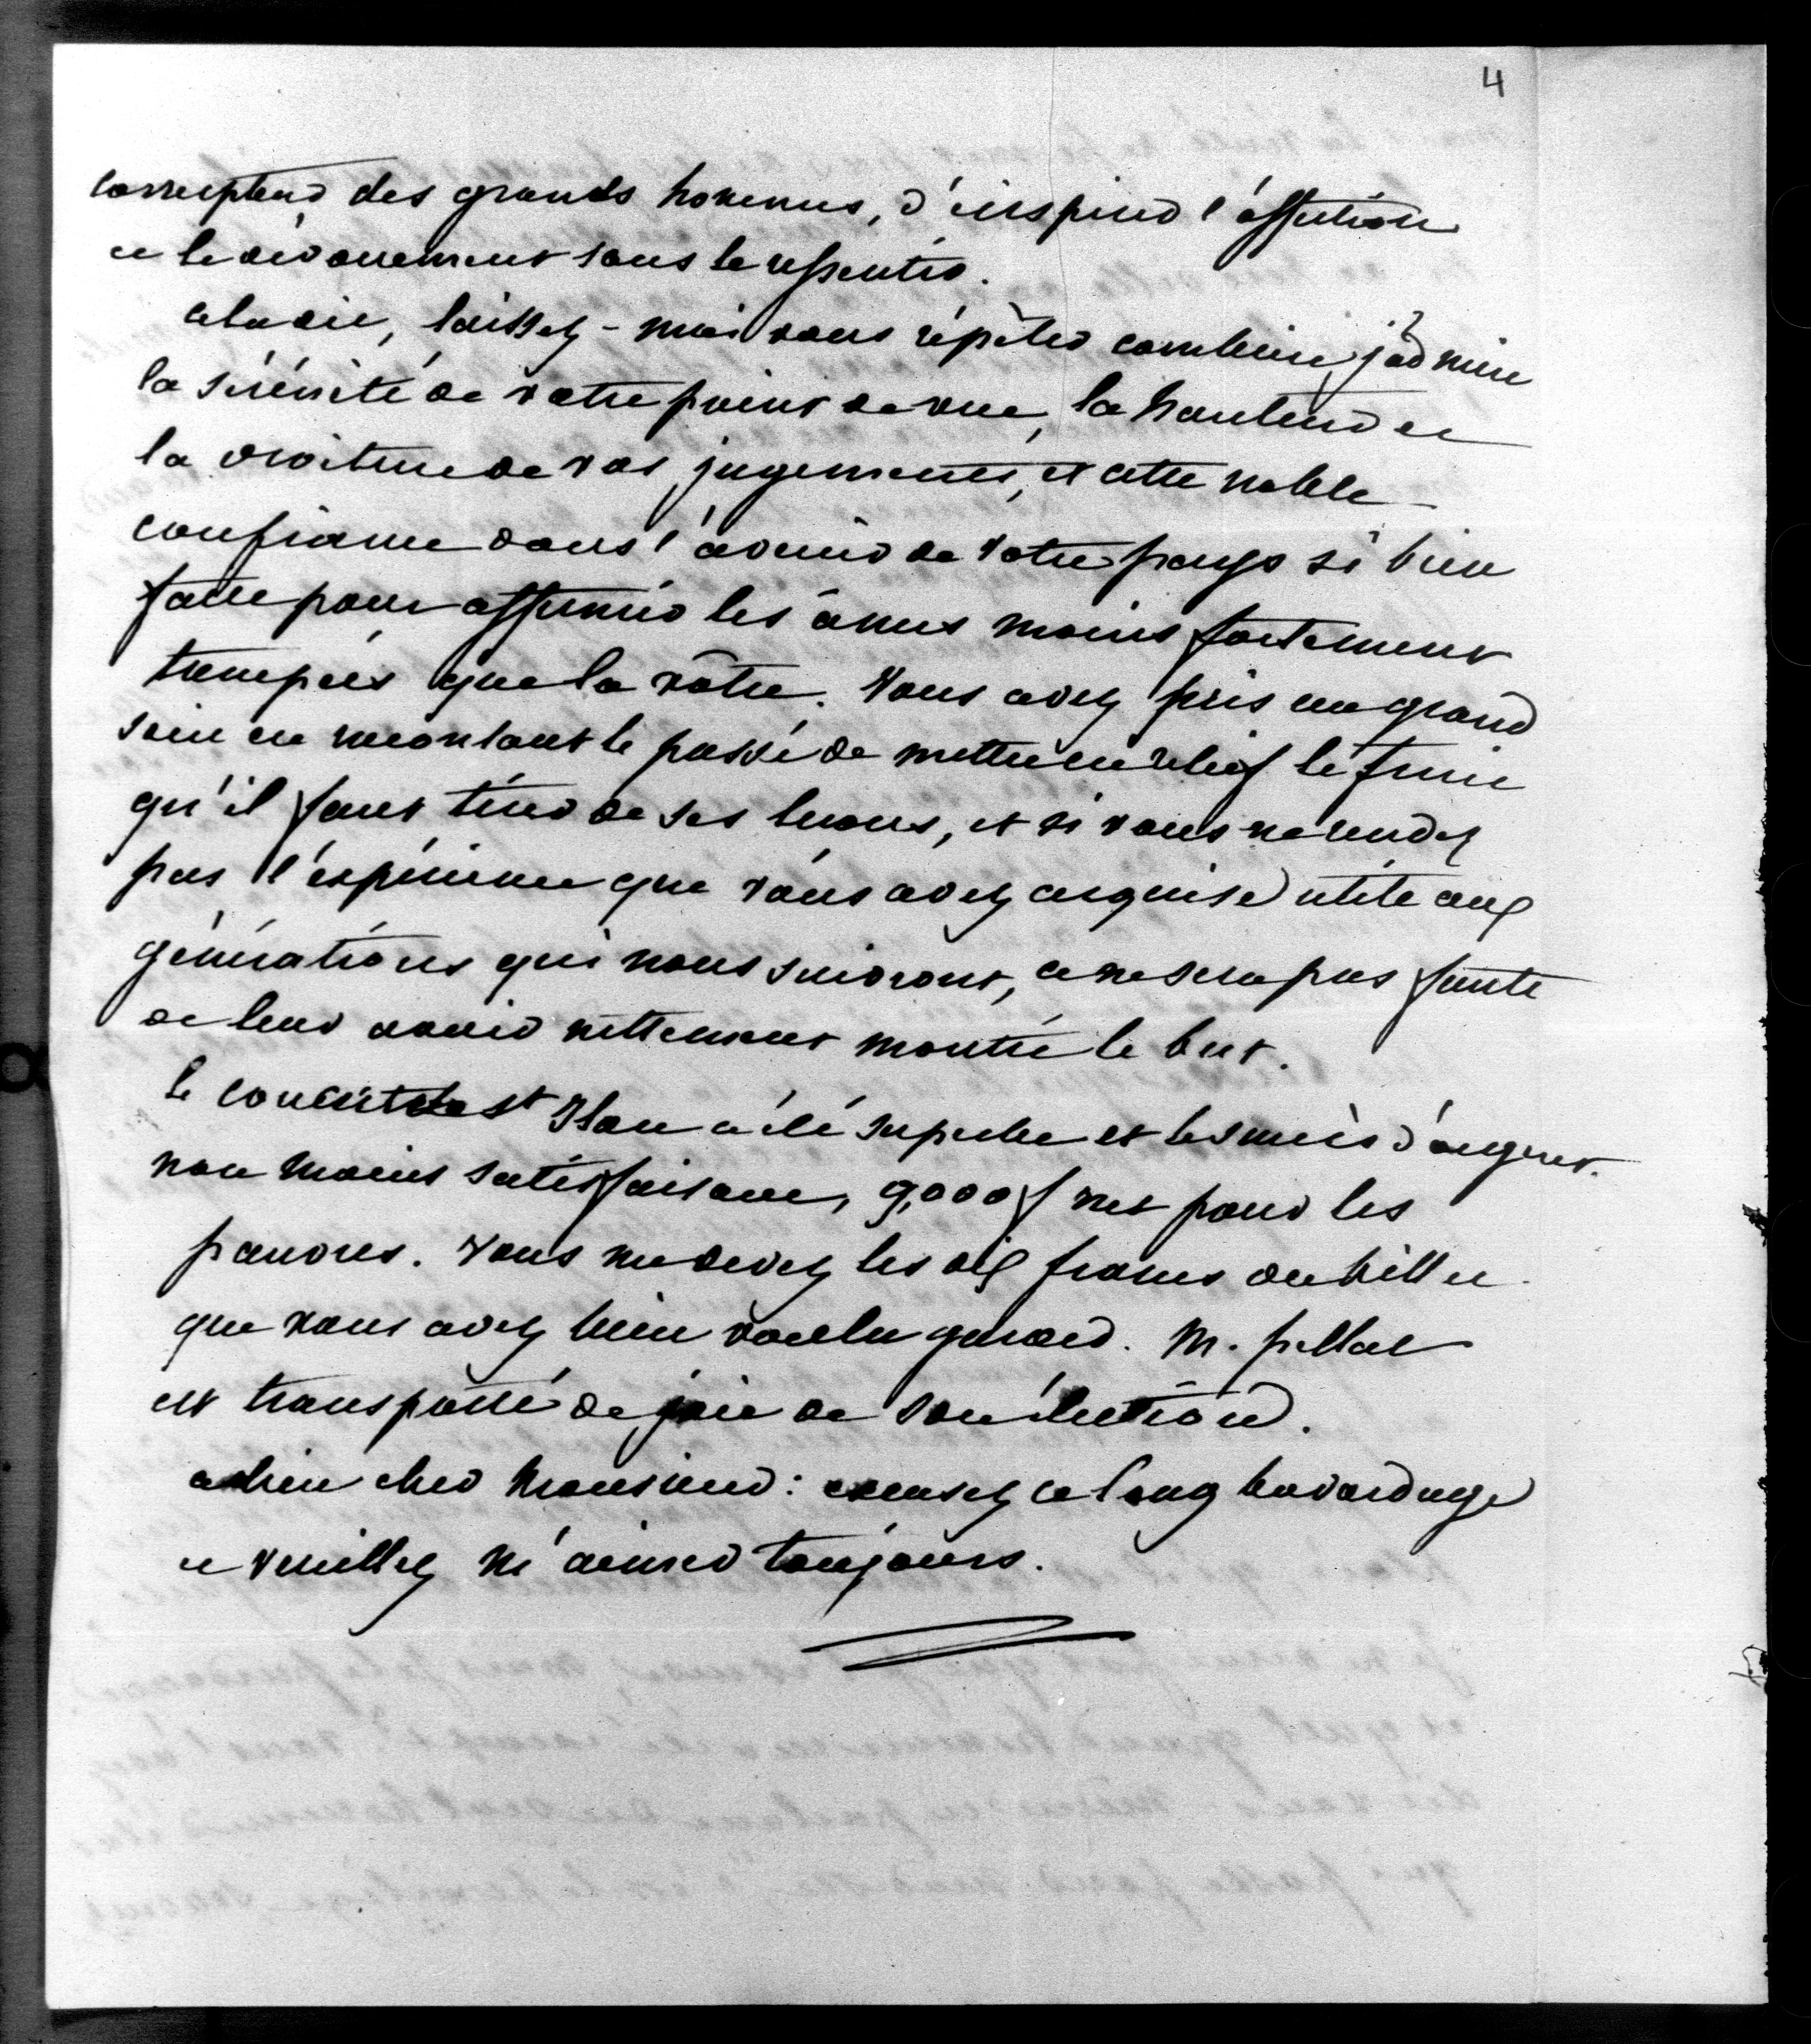 4
des grands hommes, d'inspirer l'affection
et le dévouement sans le ressentir.
Cela dit, laissez-moi vous répéter combien j'admire
la sérénité de votre point de vue, la hauteur et
la droiture de vos jugements, et cette noble
confiance dans l'avenir de votre pays si bien
faite pour affermir les âmes moins fortement
trempées que la vôtre. Vous avez pris un grand
soin en racontant le passé de mettre en relief le fruit
qu'il faut tirer de ses leçons, et si vous ne rendez
pas l'expérience que vous avez acquise utile aux
générations qui nous suivront, ce ne sera pas faute
de leur avoir nettement montré le but.
le concert de St Jean a été superbe et les mérs d'argent
non moins satisfaisant, 9,000 f net pour les
pauvres. Vous me devez les dix francs du billet
que vous avez bien voulu garder. M.
est transporté de joie de son élection.
adieu cher Monsieur : excusez ce long bavardage
et veuillez m'aimer toujours.